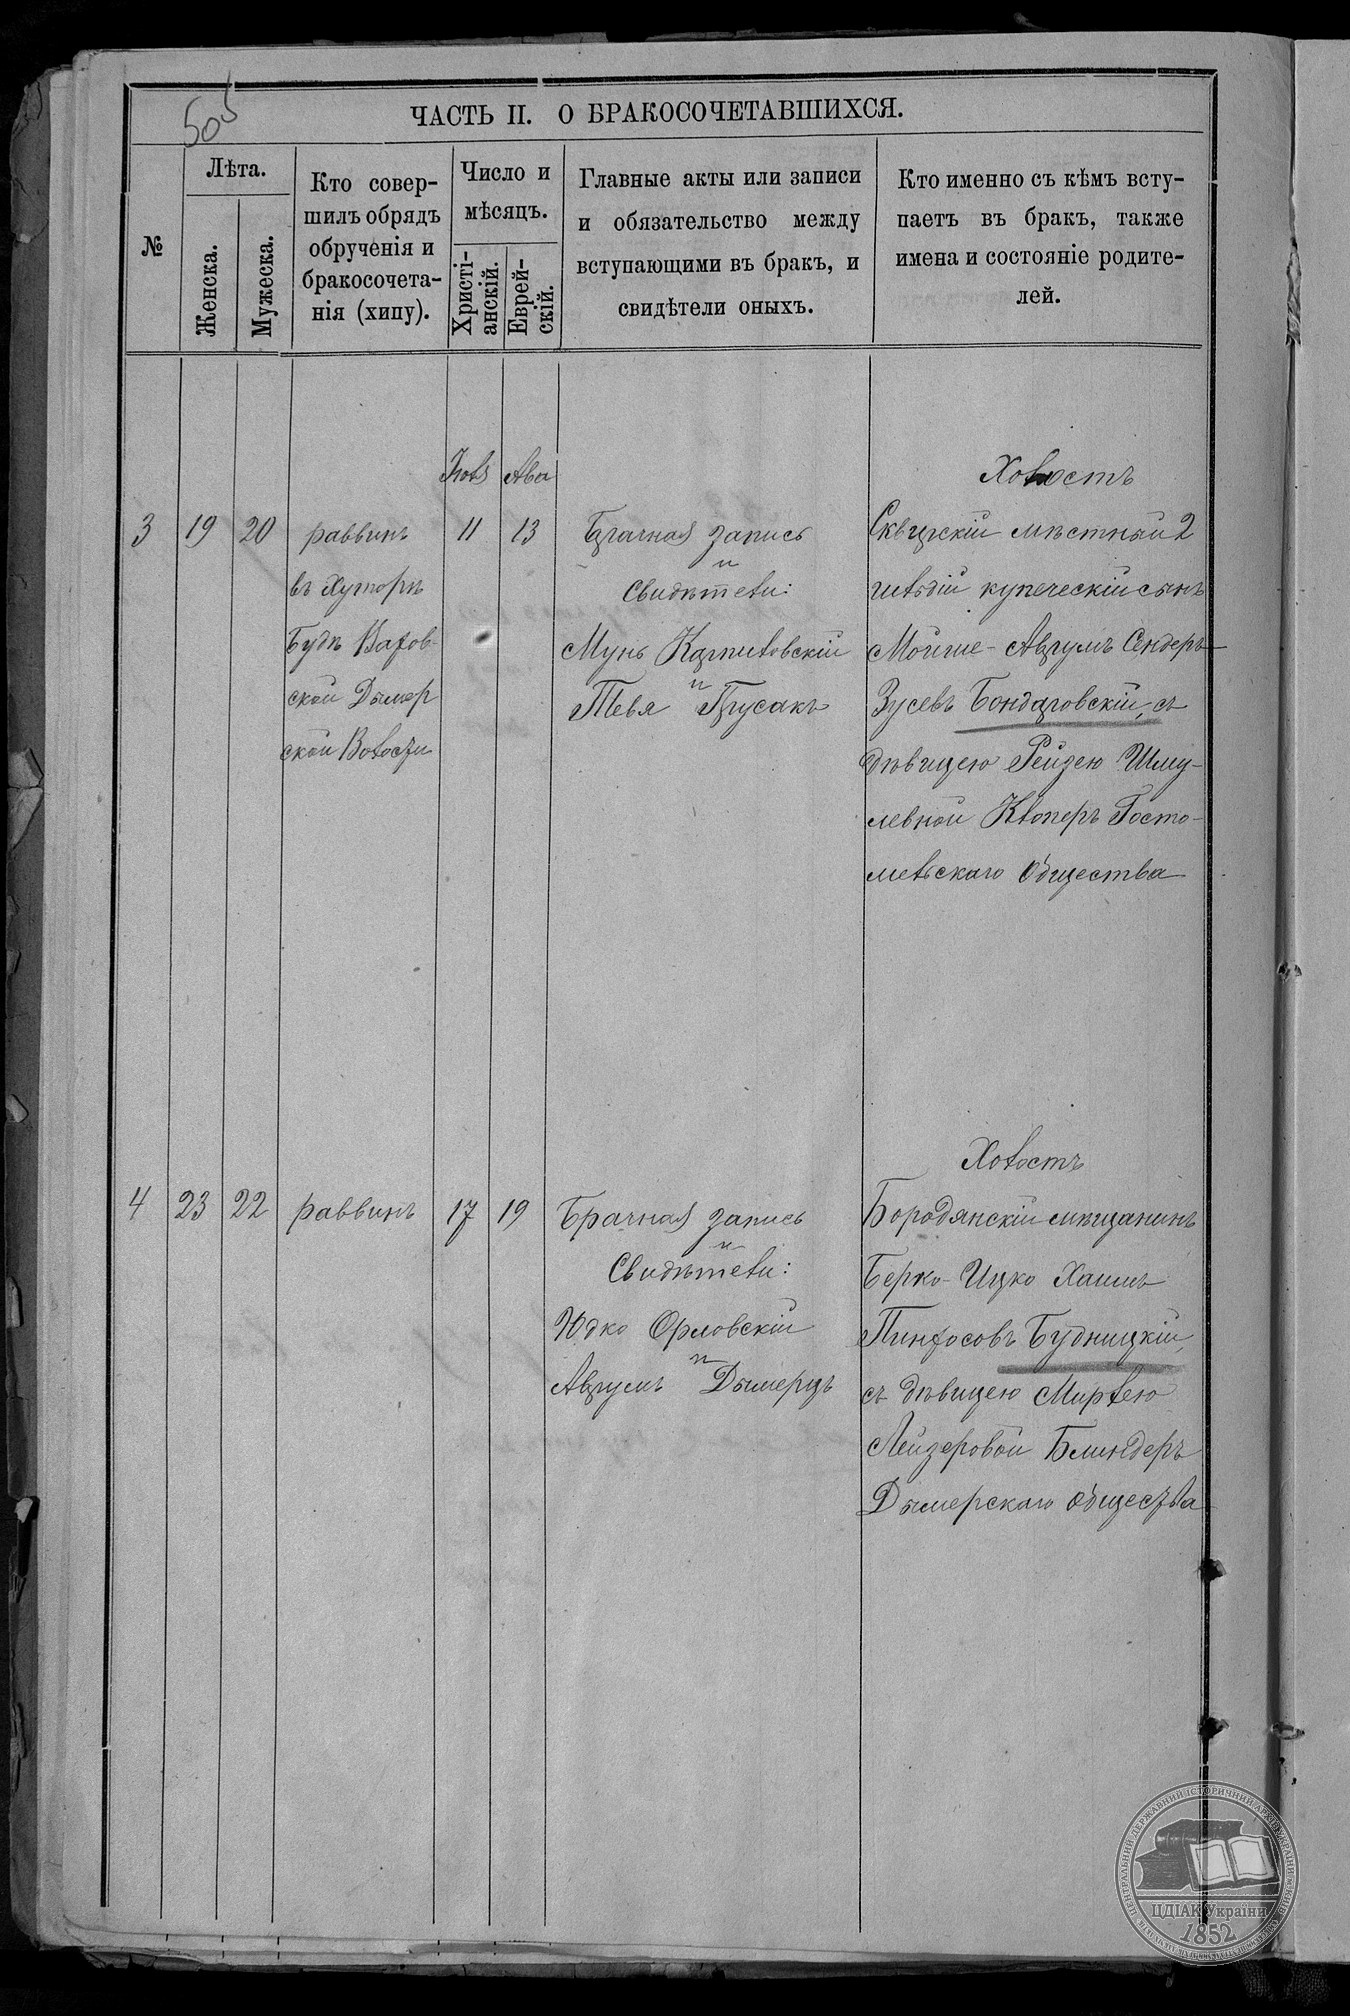 505
ЧАСТЬ II. О БРАКОСОЧЕТАВШИХСЯ.
№
Лѣта.
Женска.
Мужеска.
Кто совер-
шилъ обрядъ
обрученія и
бракосочета-
нія (хипу).
Число и
мѣсяцъ.
Христі-
анскій.
Еврей-
скій.
Главные акты или записи
и обязательство между
вступающими въ бракъ, и
свидѣтели оныхъ.
Кто именно съ кѣмъ всту-
паетъ въ бракъ, также
имена и состояніе родите-
лей.
Іюля
Ава
3
19
20
раввинъ
въ Хуторѣ
Будѣ
ской Дымер
ской Волости
11
13
Брачная запись
и
Свидѣтели:
Мунь Карпиловскій
и
Тевя Прусакъ
Холостъ
Сквирскій мѣстный 2
гильдій купеческій сынъ
Мойше-Аврумъ Сендеръ
Зусевъ Бондаровскій, съ
дѣвицею Рейзею Шму-
левной Клоперъ Госто-
мельскаго Общества
4
23
22
раввинъ
17
19
Брачная запись
и
Свидѣтели:
Юдко Орловскій
и
Аврумъ Дымерцъ
Холостъ
Бородянскій мѣщанинъ
Берко-Ицко Хаимъ
Пинхосовъ Будницкій,
съ дѣвицею Мирлею
Лейзеровой Блиндеръ
Дымерскаго общества
ЦЕНТРАЛЬНИЙ ДЕРЖАВНИЙ ІСТОРИЧНИЙ АРХІВ УКРАЇНИ, М. КИЇВ
ЦДІАК України
1852